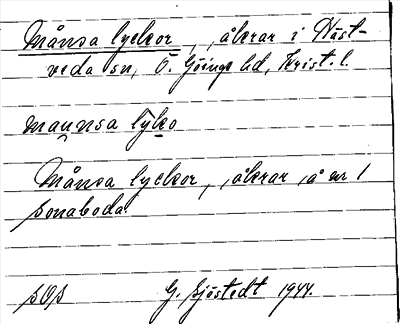 Månsa lyckor, åkrar i Häst-
veda sn, Ö. Göinge hd, Krist. l.
maunsa lyko
Månsa lyckor, åkrar å nr 1
Sonaboda
G. Sjöstedt 1944.